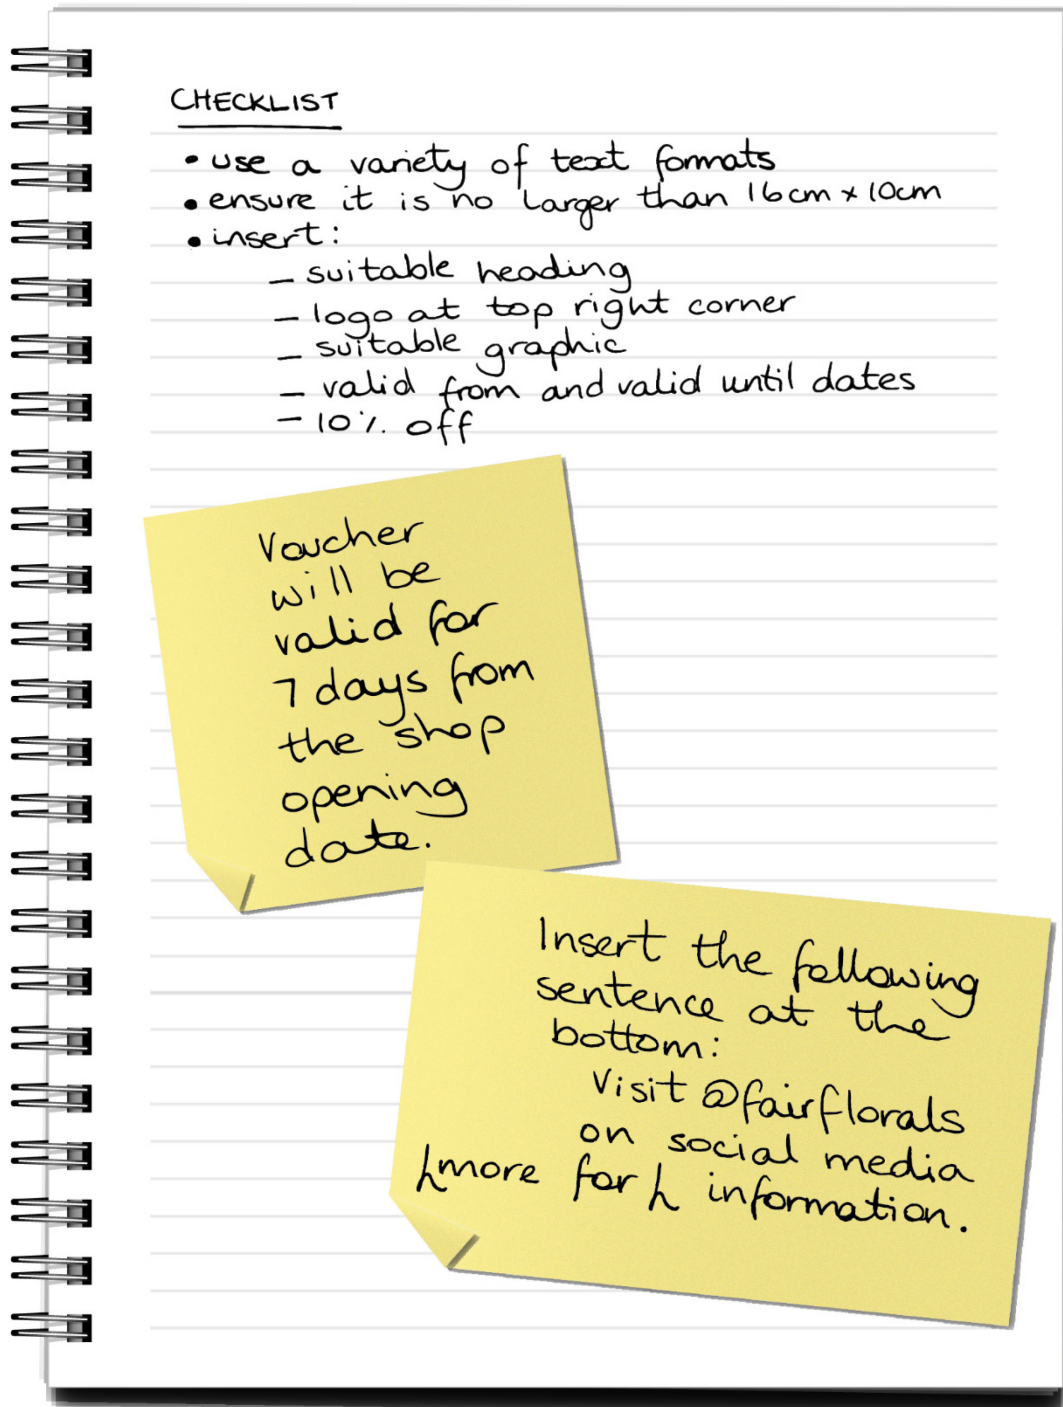 CHECKLIST
• use a variety of text formats
• ensure it is no larger than 16cm x 10cm
• insert:
– suitable heading
– logo at top right corner
– suitable graphic
– valid from and valid until dates
– 10% off
Voucher
will be
valid for
7 days from
the shop
opening
date.
Insert the following
sentence at the
bottom:
Visit @fairflorals
on social media
⁁more for ⁁ information.